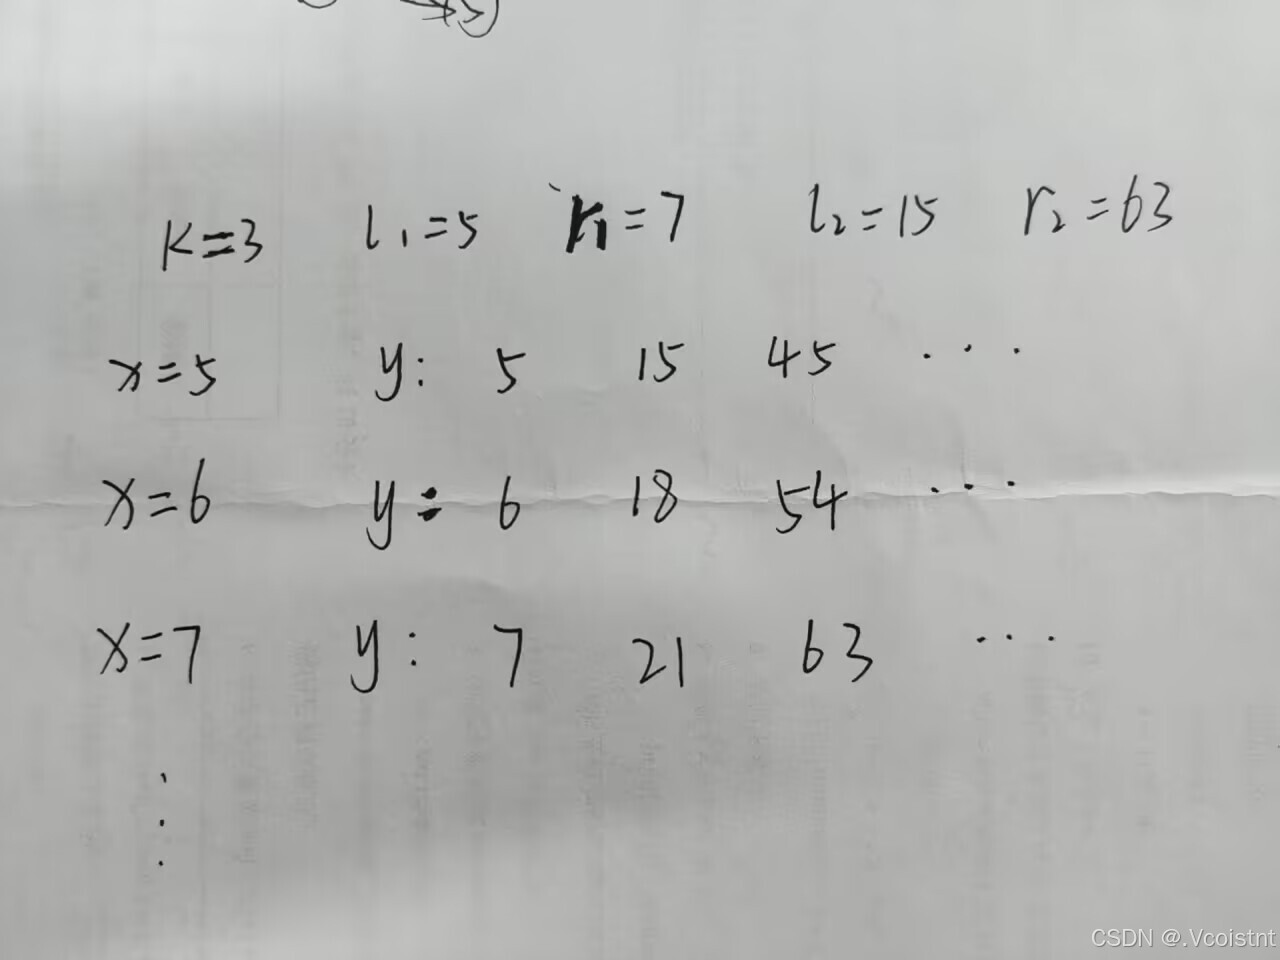 K=3 l₁=5 r₁=7 l₂=15 r₂=63
x=5 y: 5 15 45 ...
x=6 y: 6 18 54 ...
x=7 y: 7 21 63 ...
⋮
CSDN @.Vcoistnt